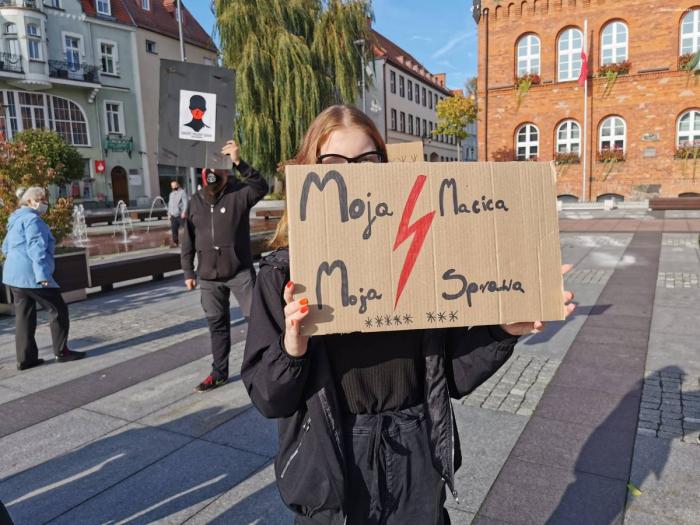 Moja Macica
Moja Sprawa
***** ***